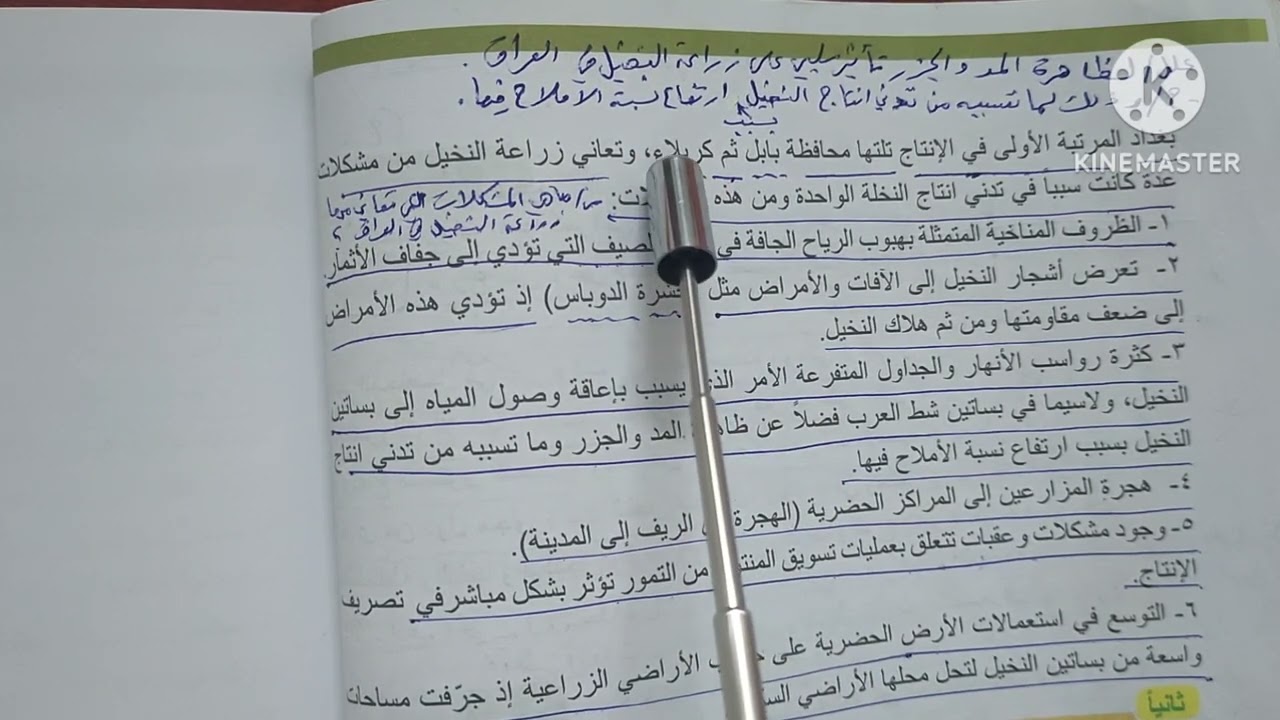 لظاهرة المد والجزر تأثير سلبي على زراعة النخيل في العراق.
لما تسببه من تدني انتاج النخيل ارتفاع نسبة الأملاح فيها.
بسبب
KINEMASTER
بغداد المرتبة الأولى في الإنتاج تلتها محافظة بابل ثم كربلاء، وتعاني زراعة النخيل من مشكلات
عدة كانت سبباً في تدني انتاج النخلة الواحدة ومن هذه
س/ ماهي المشكلات التي تعاني منها
زراعة النخيل في العراق ؟
١- الظروف المناخية المتمثلة بهبوب الرياح الجافة في الصيف التي تؤدي إلى جفاف الأثمار.
٢- تعرض أشجار النخيل إلى الآفات والأمراض مثل حشرة الدوباس) إذ تؤدي هذه الأمراض
إلى ضعف مقاومتها ومن ثم هلاك النخيل.
٣- كثرة رواسب الأنهار والجداول المتفرعة الأمر الذي يسبب بإعاقة وصول المياه إلى بساتين
النخيل، ولاسيما في بساتين شط العرب فضلاً عن ظاهرة المد والجزر وما تسببه من تدني انتاج
النخيل بسبب ارتفاع نسبة الأملاح فيها.
٤- هجرة المزارعين إلى المراكز الحضرية (الهجرة الريف إلى المدينة).
٥- وجود مشكلات وعقبات تتعلق بعمليات تسويق من التمور تؤثر بشكل مباشرفي تصريف
الإنتاج.
٦- التوسع في استعمالات الأرض الحضرية على الأراضي الزراعية إذ جرّفت مساحات
واسعة من بساتين النخيل لتحل محلها الأراضي
ثانياً